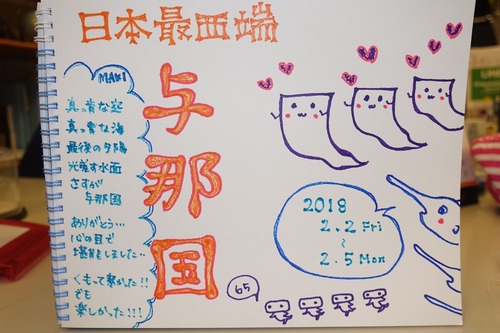 日本最西端
与那国
MAKI
真っ青な空
真っ青な海
最後の夕陽
光差す水面
さすが
与那国
ありがとう…
心の目で
くもって寒かった!!
でも
楽しかった!!!
2018
2.2 Fri
~
2.5 Mon
65